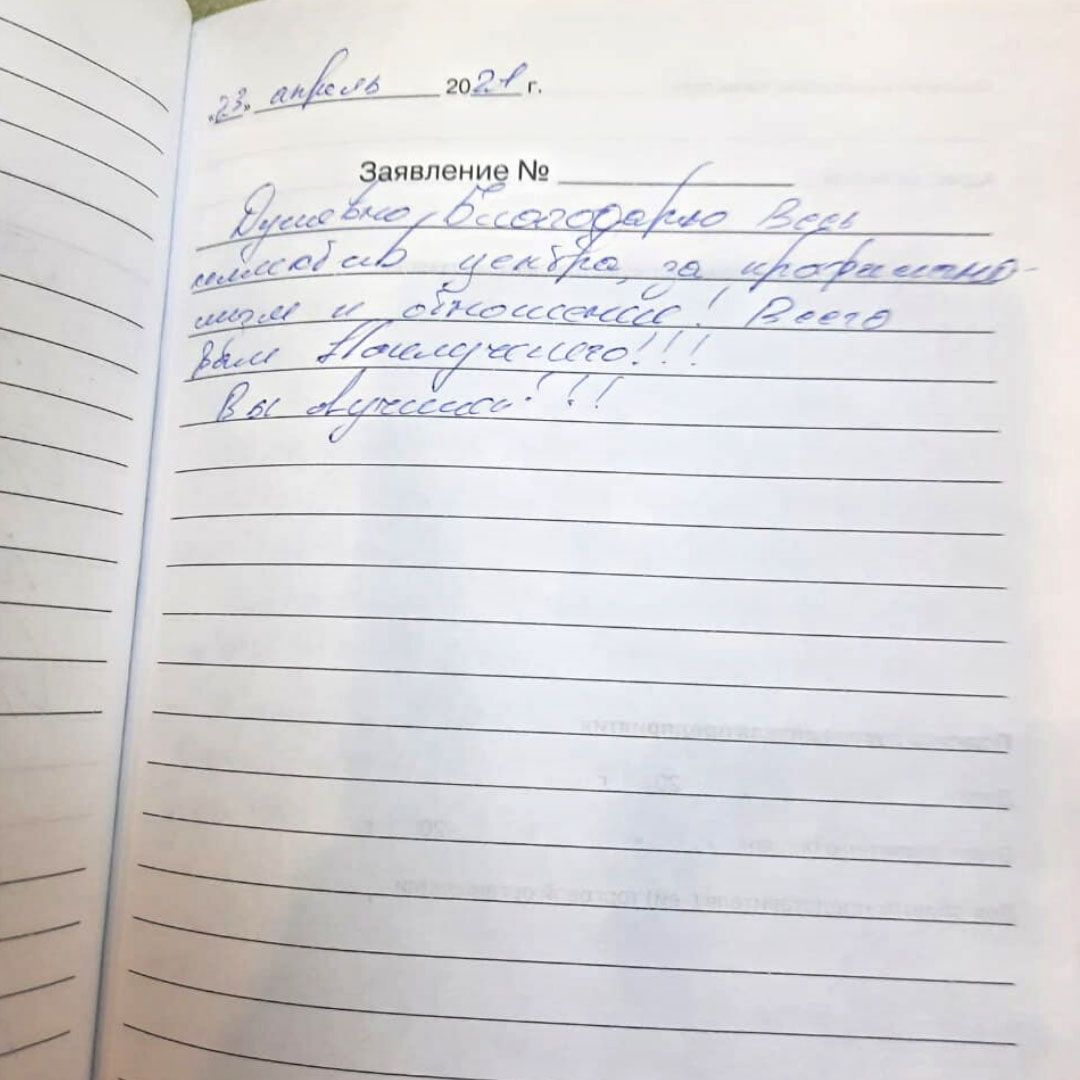 «23» апрель 2021 г.
Заявление №
Душевно, Благодарю Весь
центра, за профессионо-
лизм и отношение! Всего
Вам Наилучшего!!!
Вы лучшие!!!